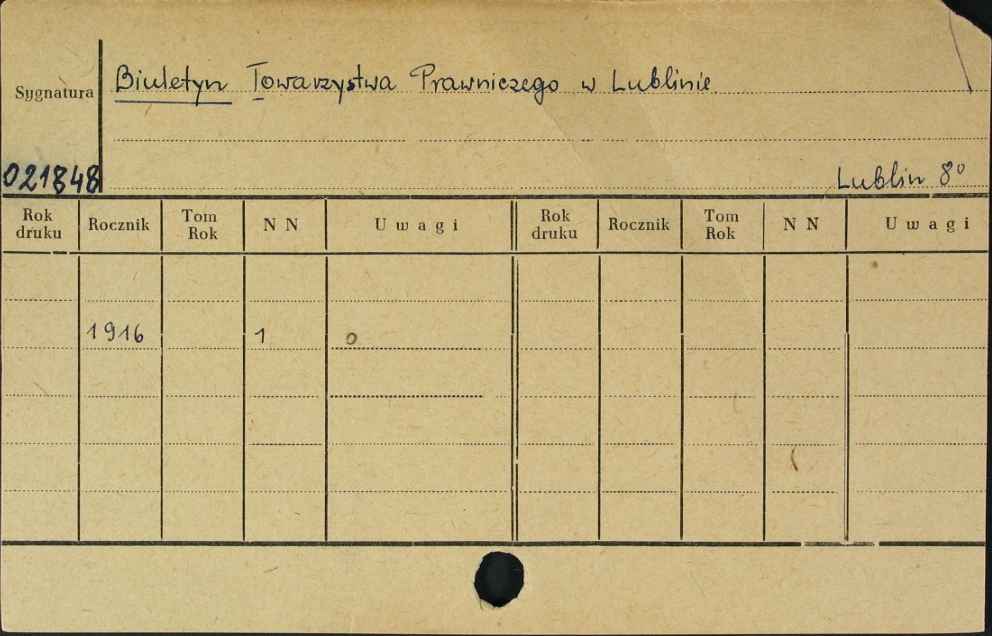 Sygnatura Biuletyn Towarzystwa Prawniczego w Lublinie
021848 Lublin 8°
Rok druku Rocznik Tom Rok N N Uwagi Rok druku Rocznik Tom Rok N N Uwagi
1916 1 o